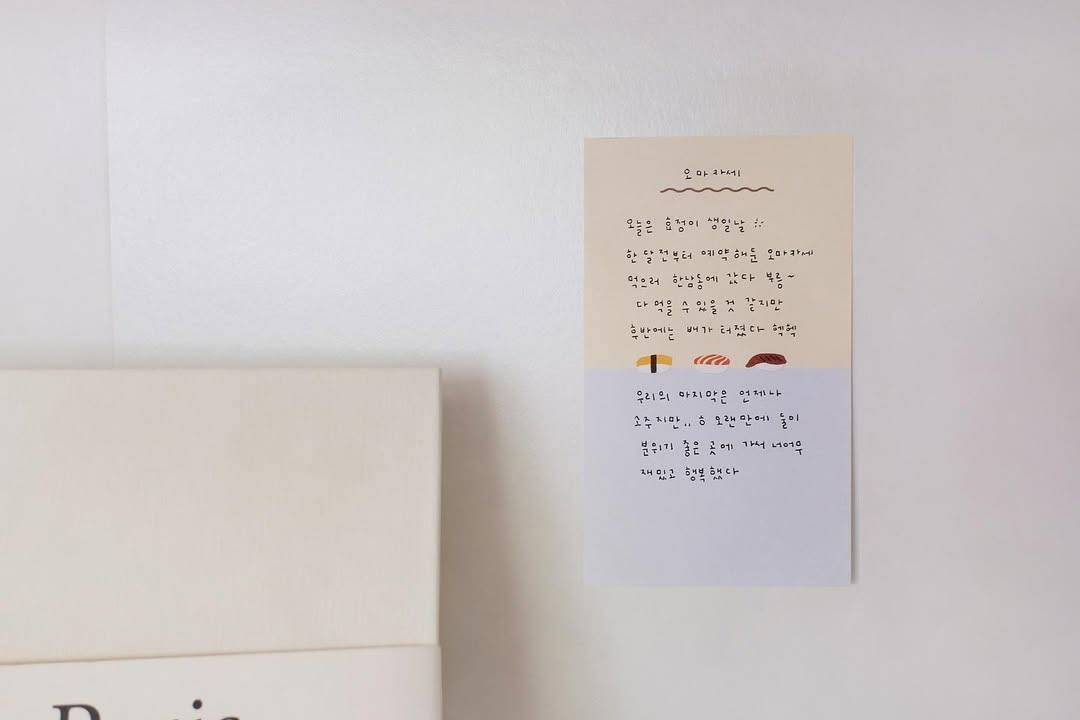 오마카세
오늘은 효정이 생일날
한 달 전부터 예약해둔 오마카세
먹으러 한남동에 갔다 부릉~
다 먹을 수 있을 것 같지만
후반에는 배가 터졌다 헥헥
우리의 마지막은 언제나
소주지만,, ㅎ 오랜만에 둘이
분위기 좋은 곳에 가서 너어무
재밌고 행복했다